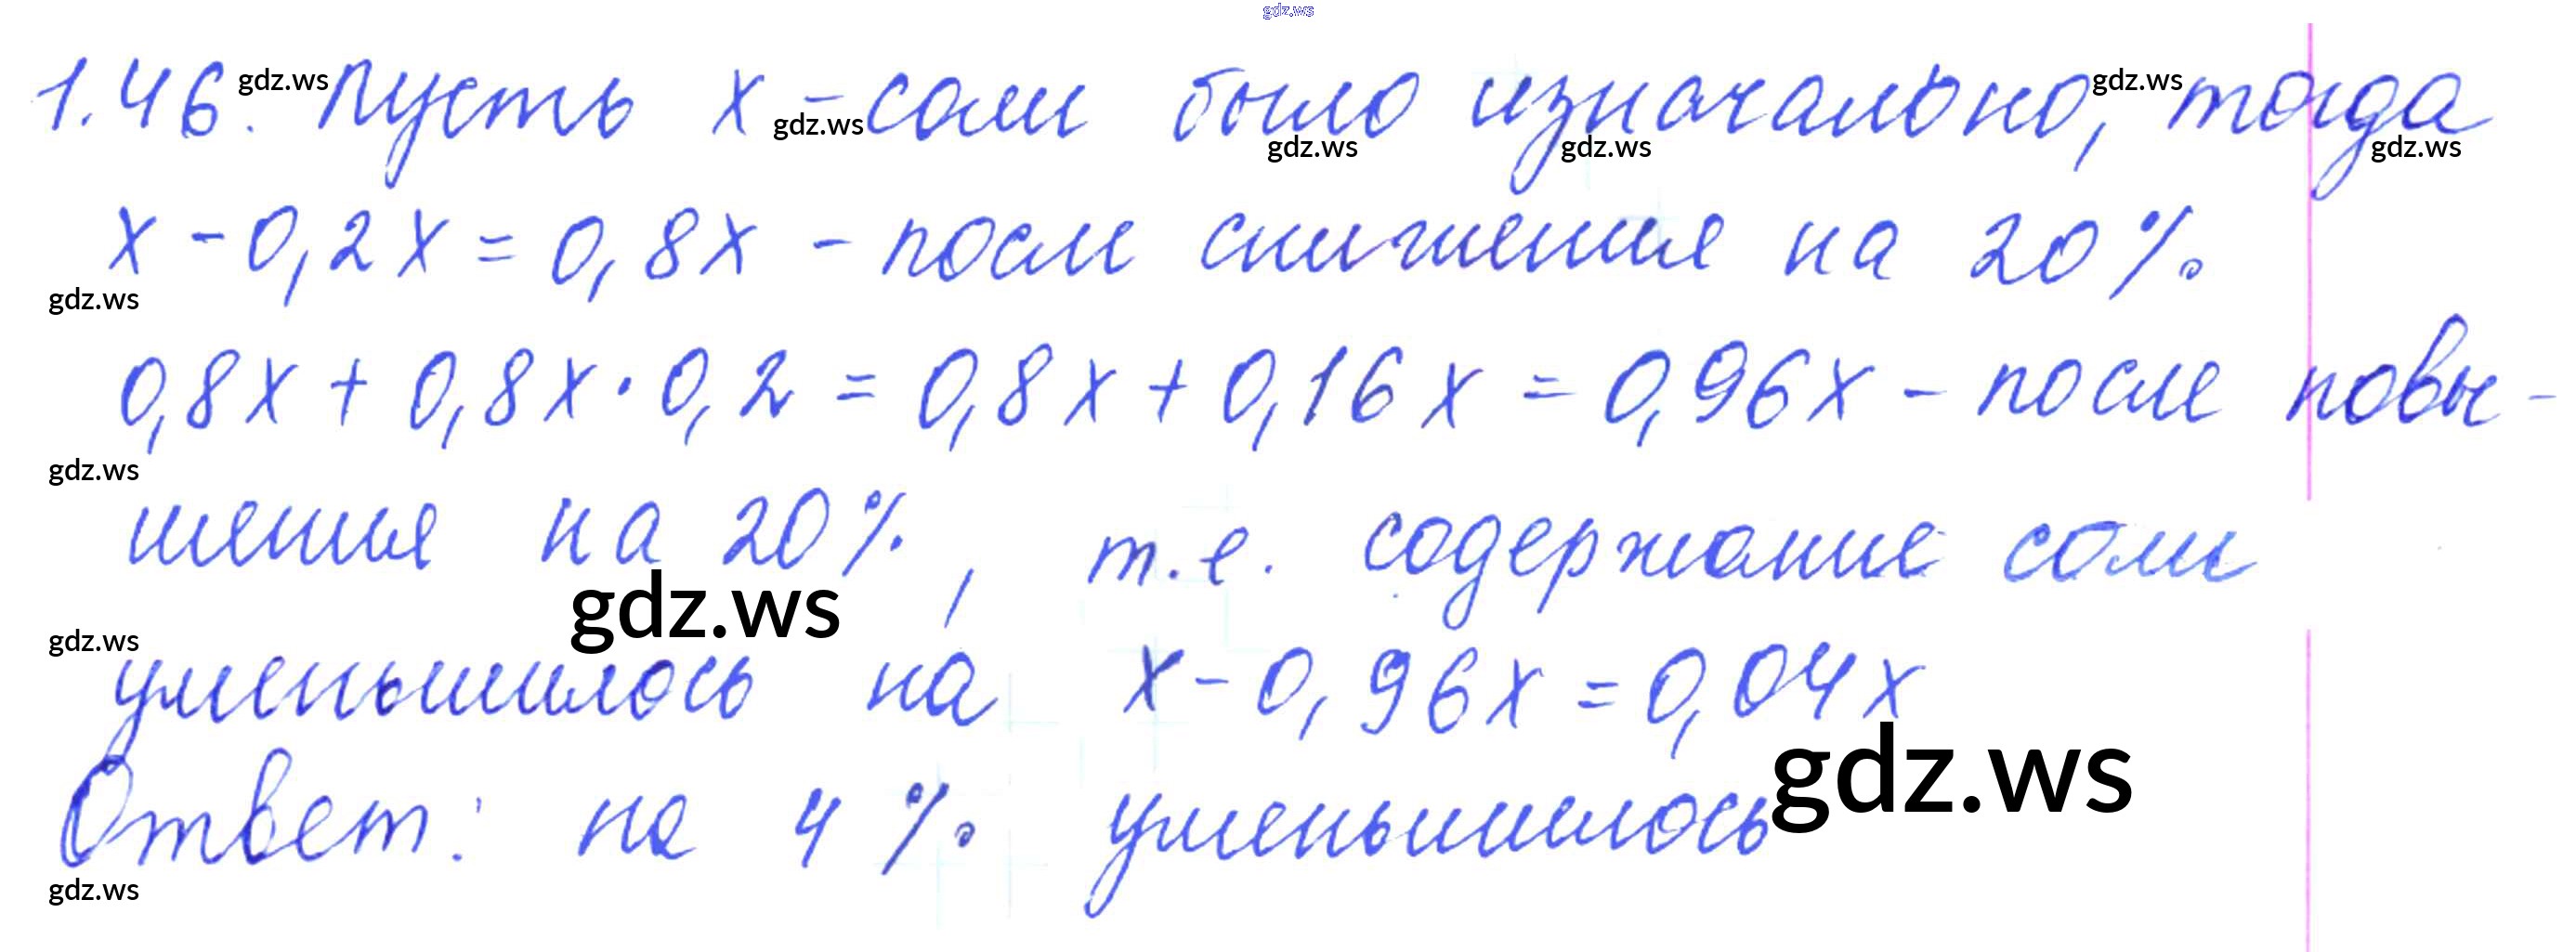 gdz.ws
1.46. Пусть x - соли было изначально, тогда
x - 0,2x = 0,8x - после снижения на 20%.
0,8x + 0,8x · 0,2 = 0,8x + 0,16x = 0,96x - после повы-
шения на 20%, т.е. содержание соли
уменьшилось на x - 0,96x = 0,04x
Ответ: на 4% уменьшилось
gdz.ws
gdz.ws
gdz.ws
gdz.ws
gdz.ws
gdz.ws
gdz.ws
gdz.ws
gdz.ws
gdz.ws
gdz.ws
gdz.ws